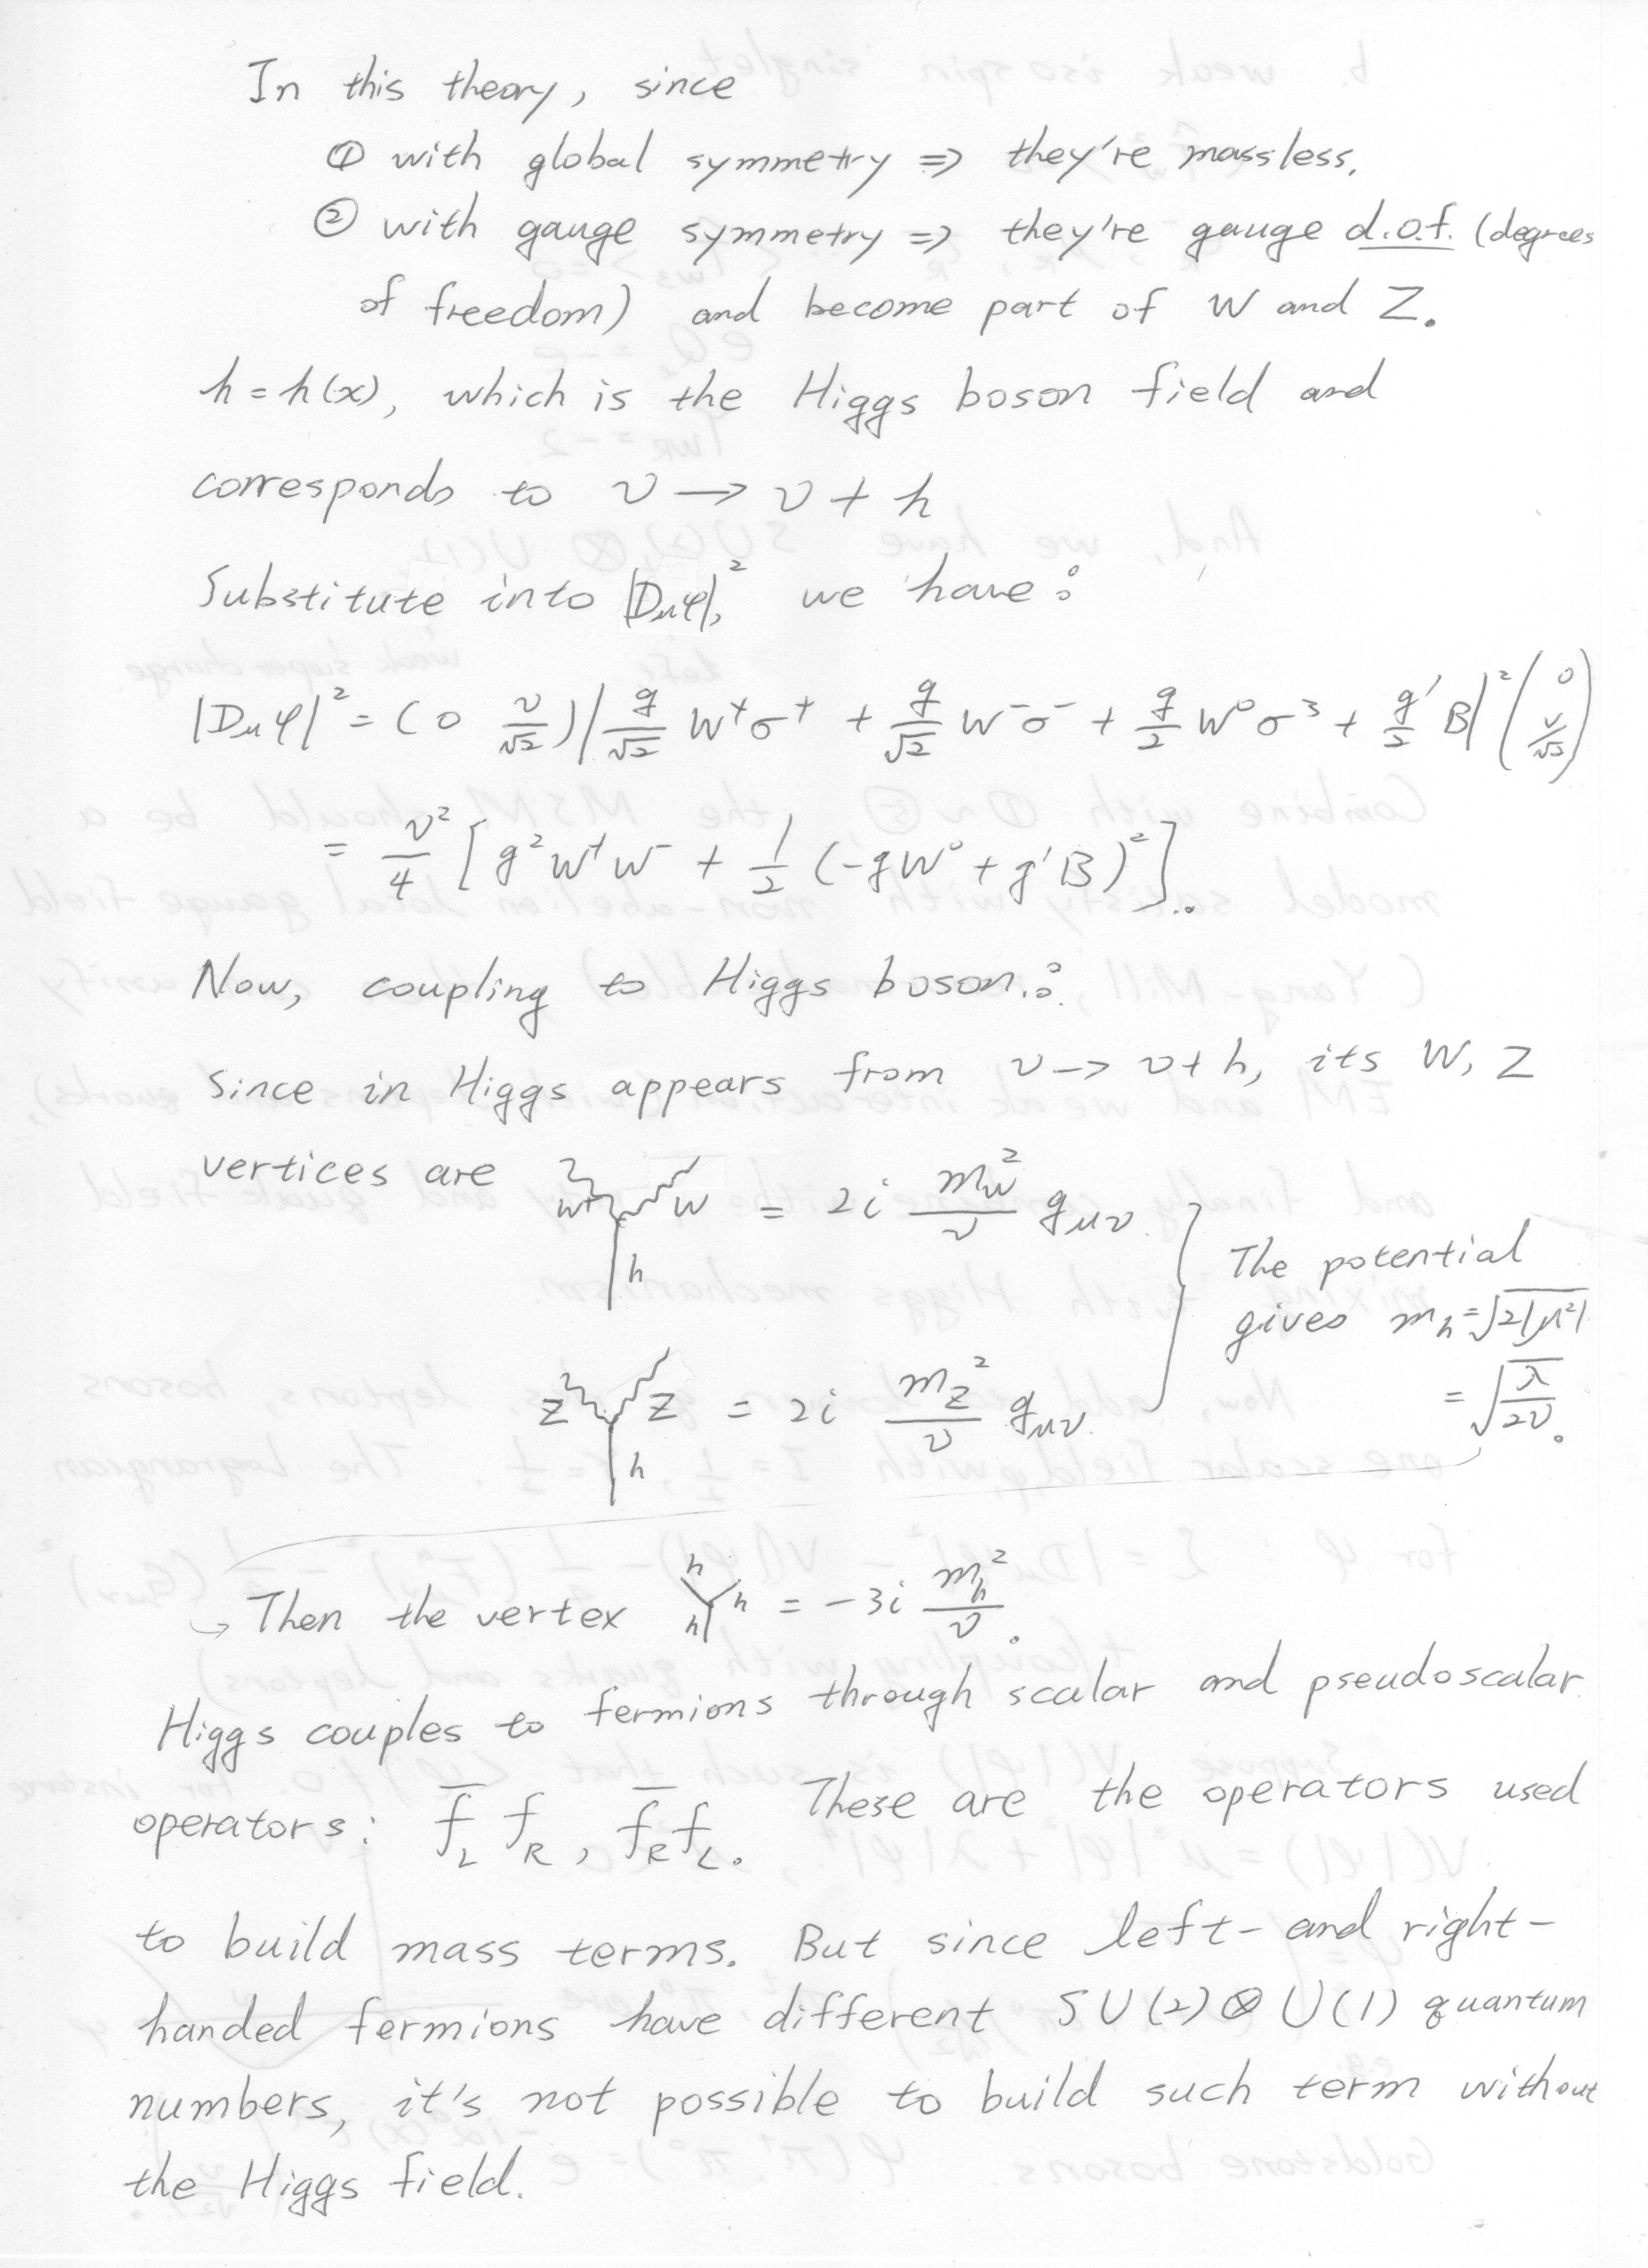 In this theory, since
① with global symmetry ⇒ they're massless.
② with gauge symmetry ⇒ they're gauge d.o.f. (degrees
of freedom) and become part of W and Z.
h = h(x), which is the Higgs boson field and
corresponds to v → v + h
Substitute into |Dμφ|², we have:
|Dμφ|² = (0 v/√2) | g/√2 W⁺σ⁺ + g/√2 W⁻σ⁻ + g/2 W⁰σ³ + g'/2 B |² (0 v/√2)
= v²/4 [g²W⁺W⁻ + 1/2 (-gW⁰ + g'B)²].
Now, coupling to Higgs boson.:
Since in Higgs appears from v → v + h, its W, Z
vertices are W⁺ W h = 2i m_W²/v g_μν
The potential
gives m_h = √2|μ²|
= √λ/2v.
Z Z h = 2i m_Z²/v g_μν.
→ Then the vertex h h h = -3i m_h²/v.
Higgs couples to fermions through scalar and pseudoscalar
operators: f̄_L f_R, f̄_R f_L. These are the operators used
to build mass terms. But since left- and right-
handed fermions have different SU(2)⊗U(1) quantum
numbers, it's not possible to build such term without
the Higgs field.